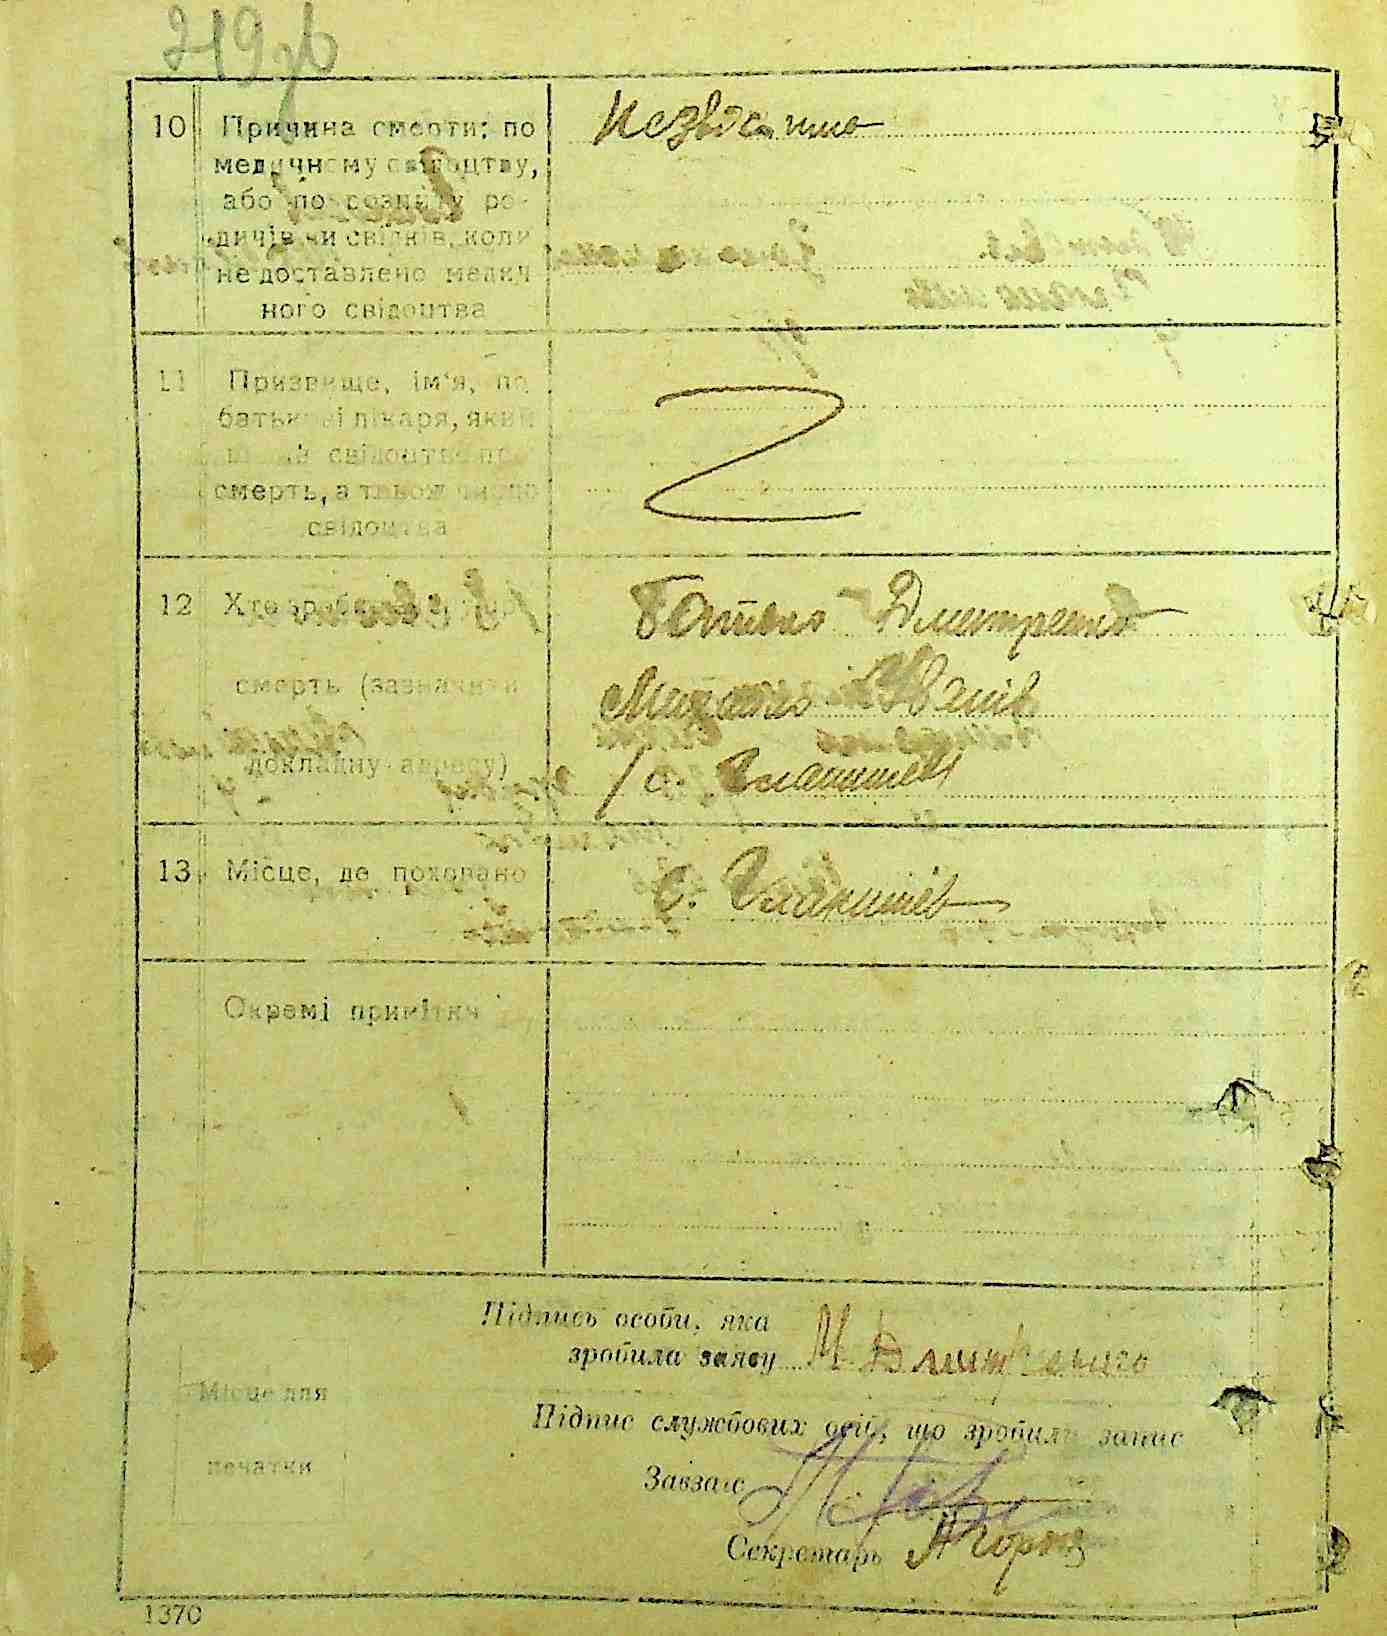 219зв
10 Причина смерти: по Незвісно
медичному свідоцтву,
або по розпиту ро-
дичів чи свідків, коли
не доставлено медич
ного свідоцтва
11 Призвище, ім'я, по
батькові лікаря, який
свідоцтво про
смерть, а також число
свідоцтва
12 Хто зробив заяву про Батько - Дмитренко
смерть (зазначити Михайло
докладну адресу) с.
13 Місце, де поховано с.
Окремі примітки
Підпись особи, яка
зробила заяву М Дмитренко
Місце для
печатки
Підпис службових осіб, що зробили запис
Завзагс
Секретарь
1370